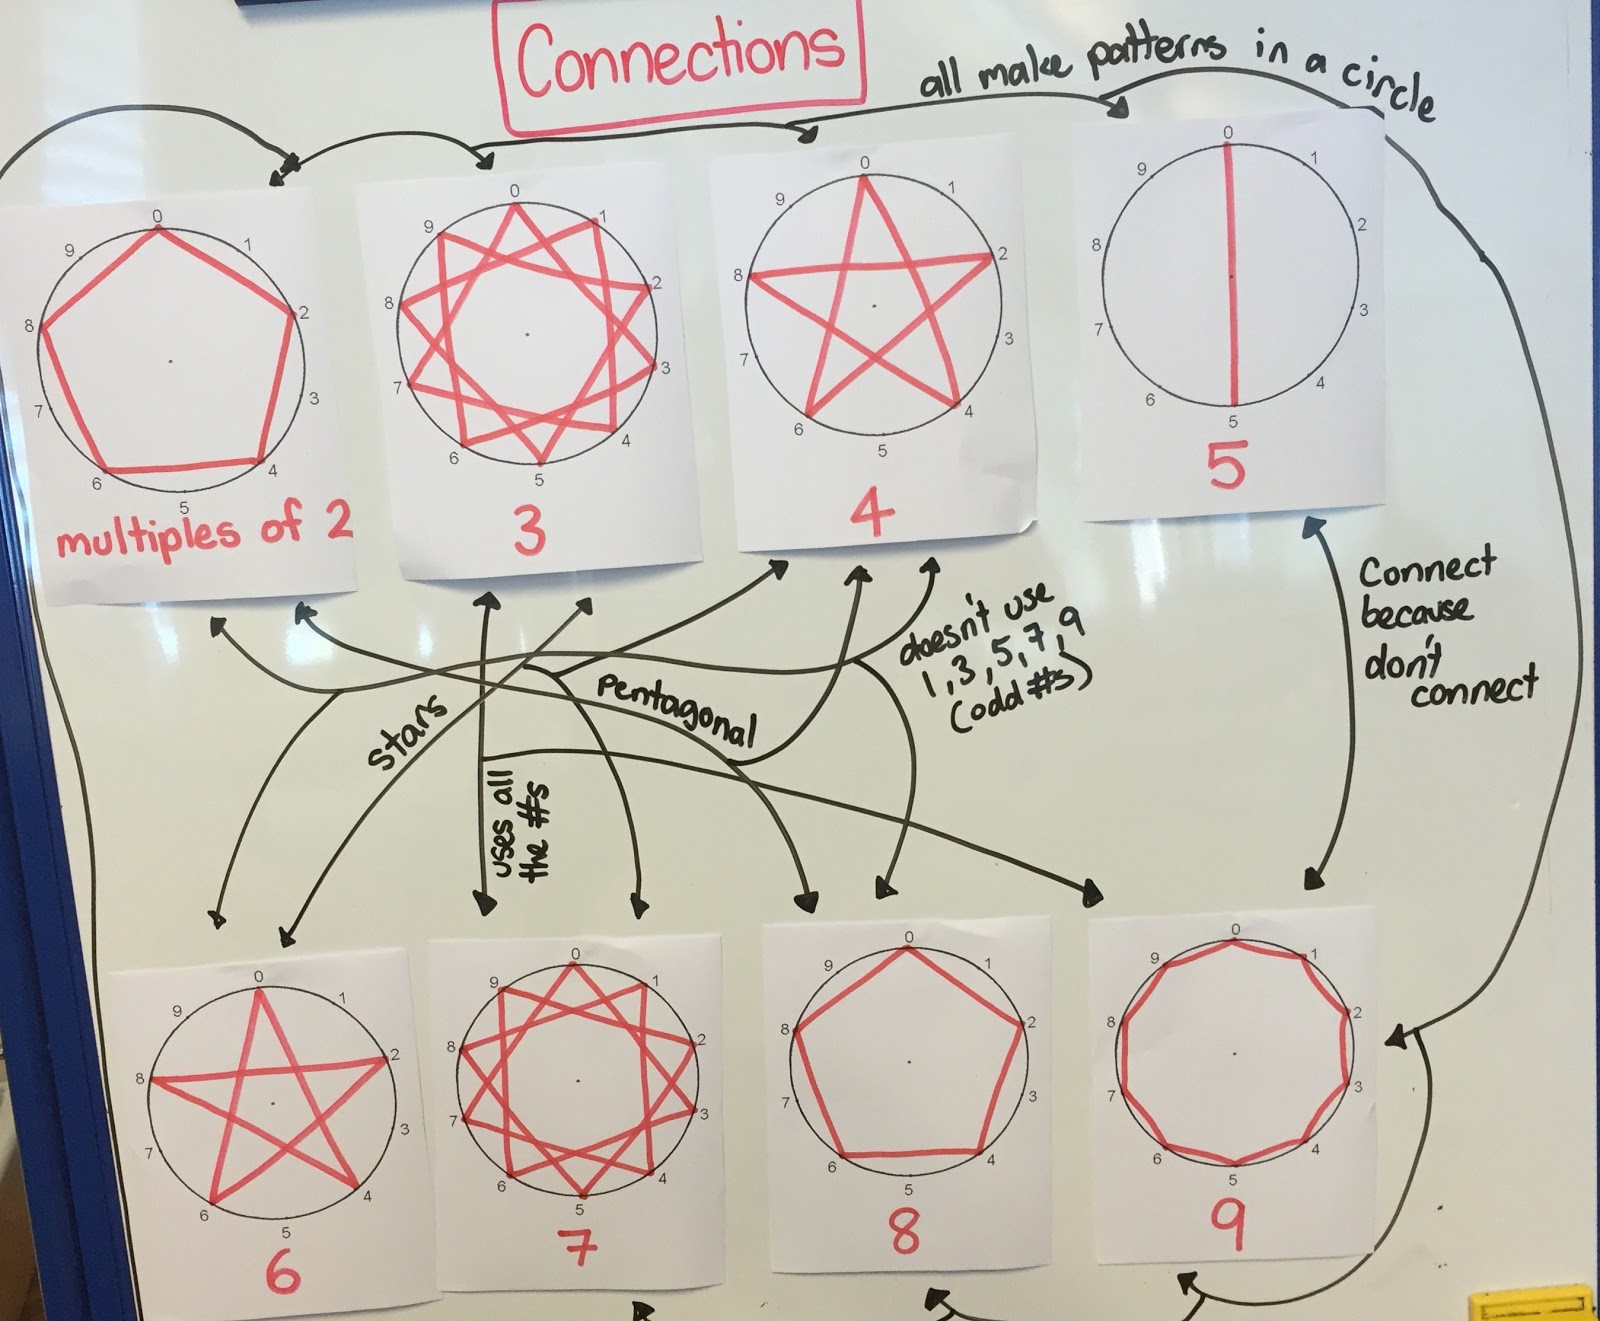 Connections
all make patterns in a circle
0
1
2
3
4
5
6
7
8
9
multiples of 2
0
1
2
3
4
5
6
7
8
9
3
0
1
2
3
4
5
6
7
8
9
4
0
1
2
3
4
5
6
7
8
9
5
stars
uses all
the #s
Pentagonal
doesn't use
1,3,5,7,9
(odd #s)
Connect
because
don't
connect
0
1
2
3
4
5
6
7
8
9
6
0
1
2
3
4
5
6
7
8
9
7
0
1
2
3
4
5
6
7
8
9
8
0
1
2
3
4
5
6
7
8
9
9